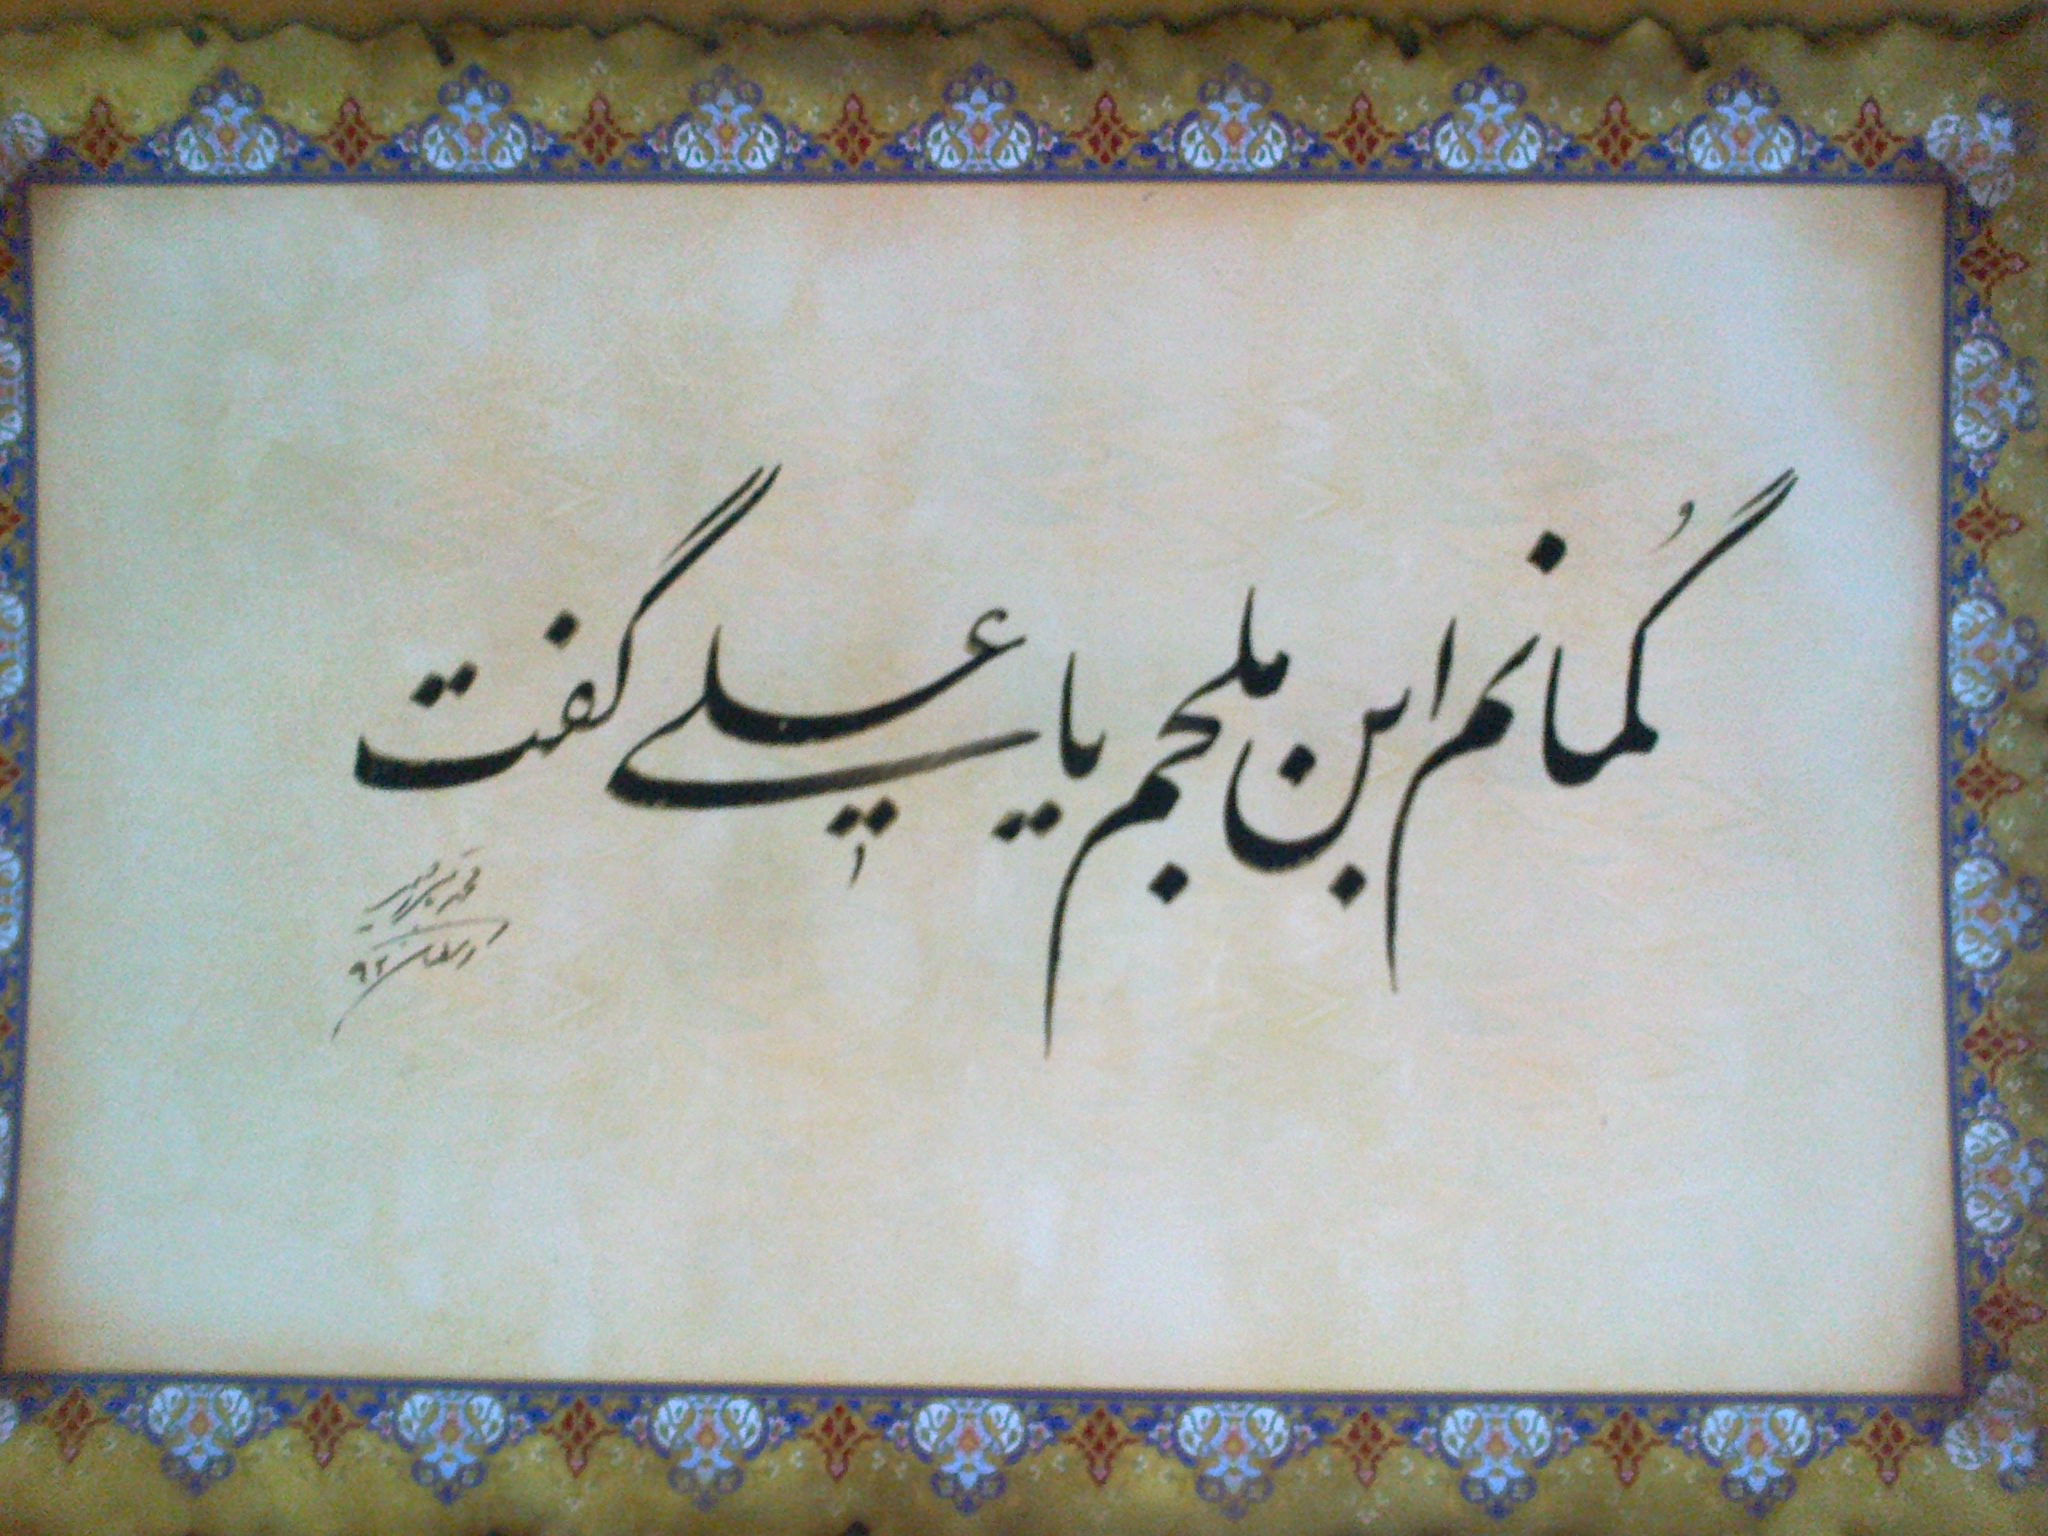 گُمانم ابن ملجم یا علی گفت
رمضان ۹۲